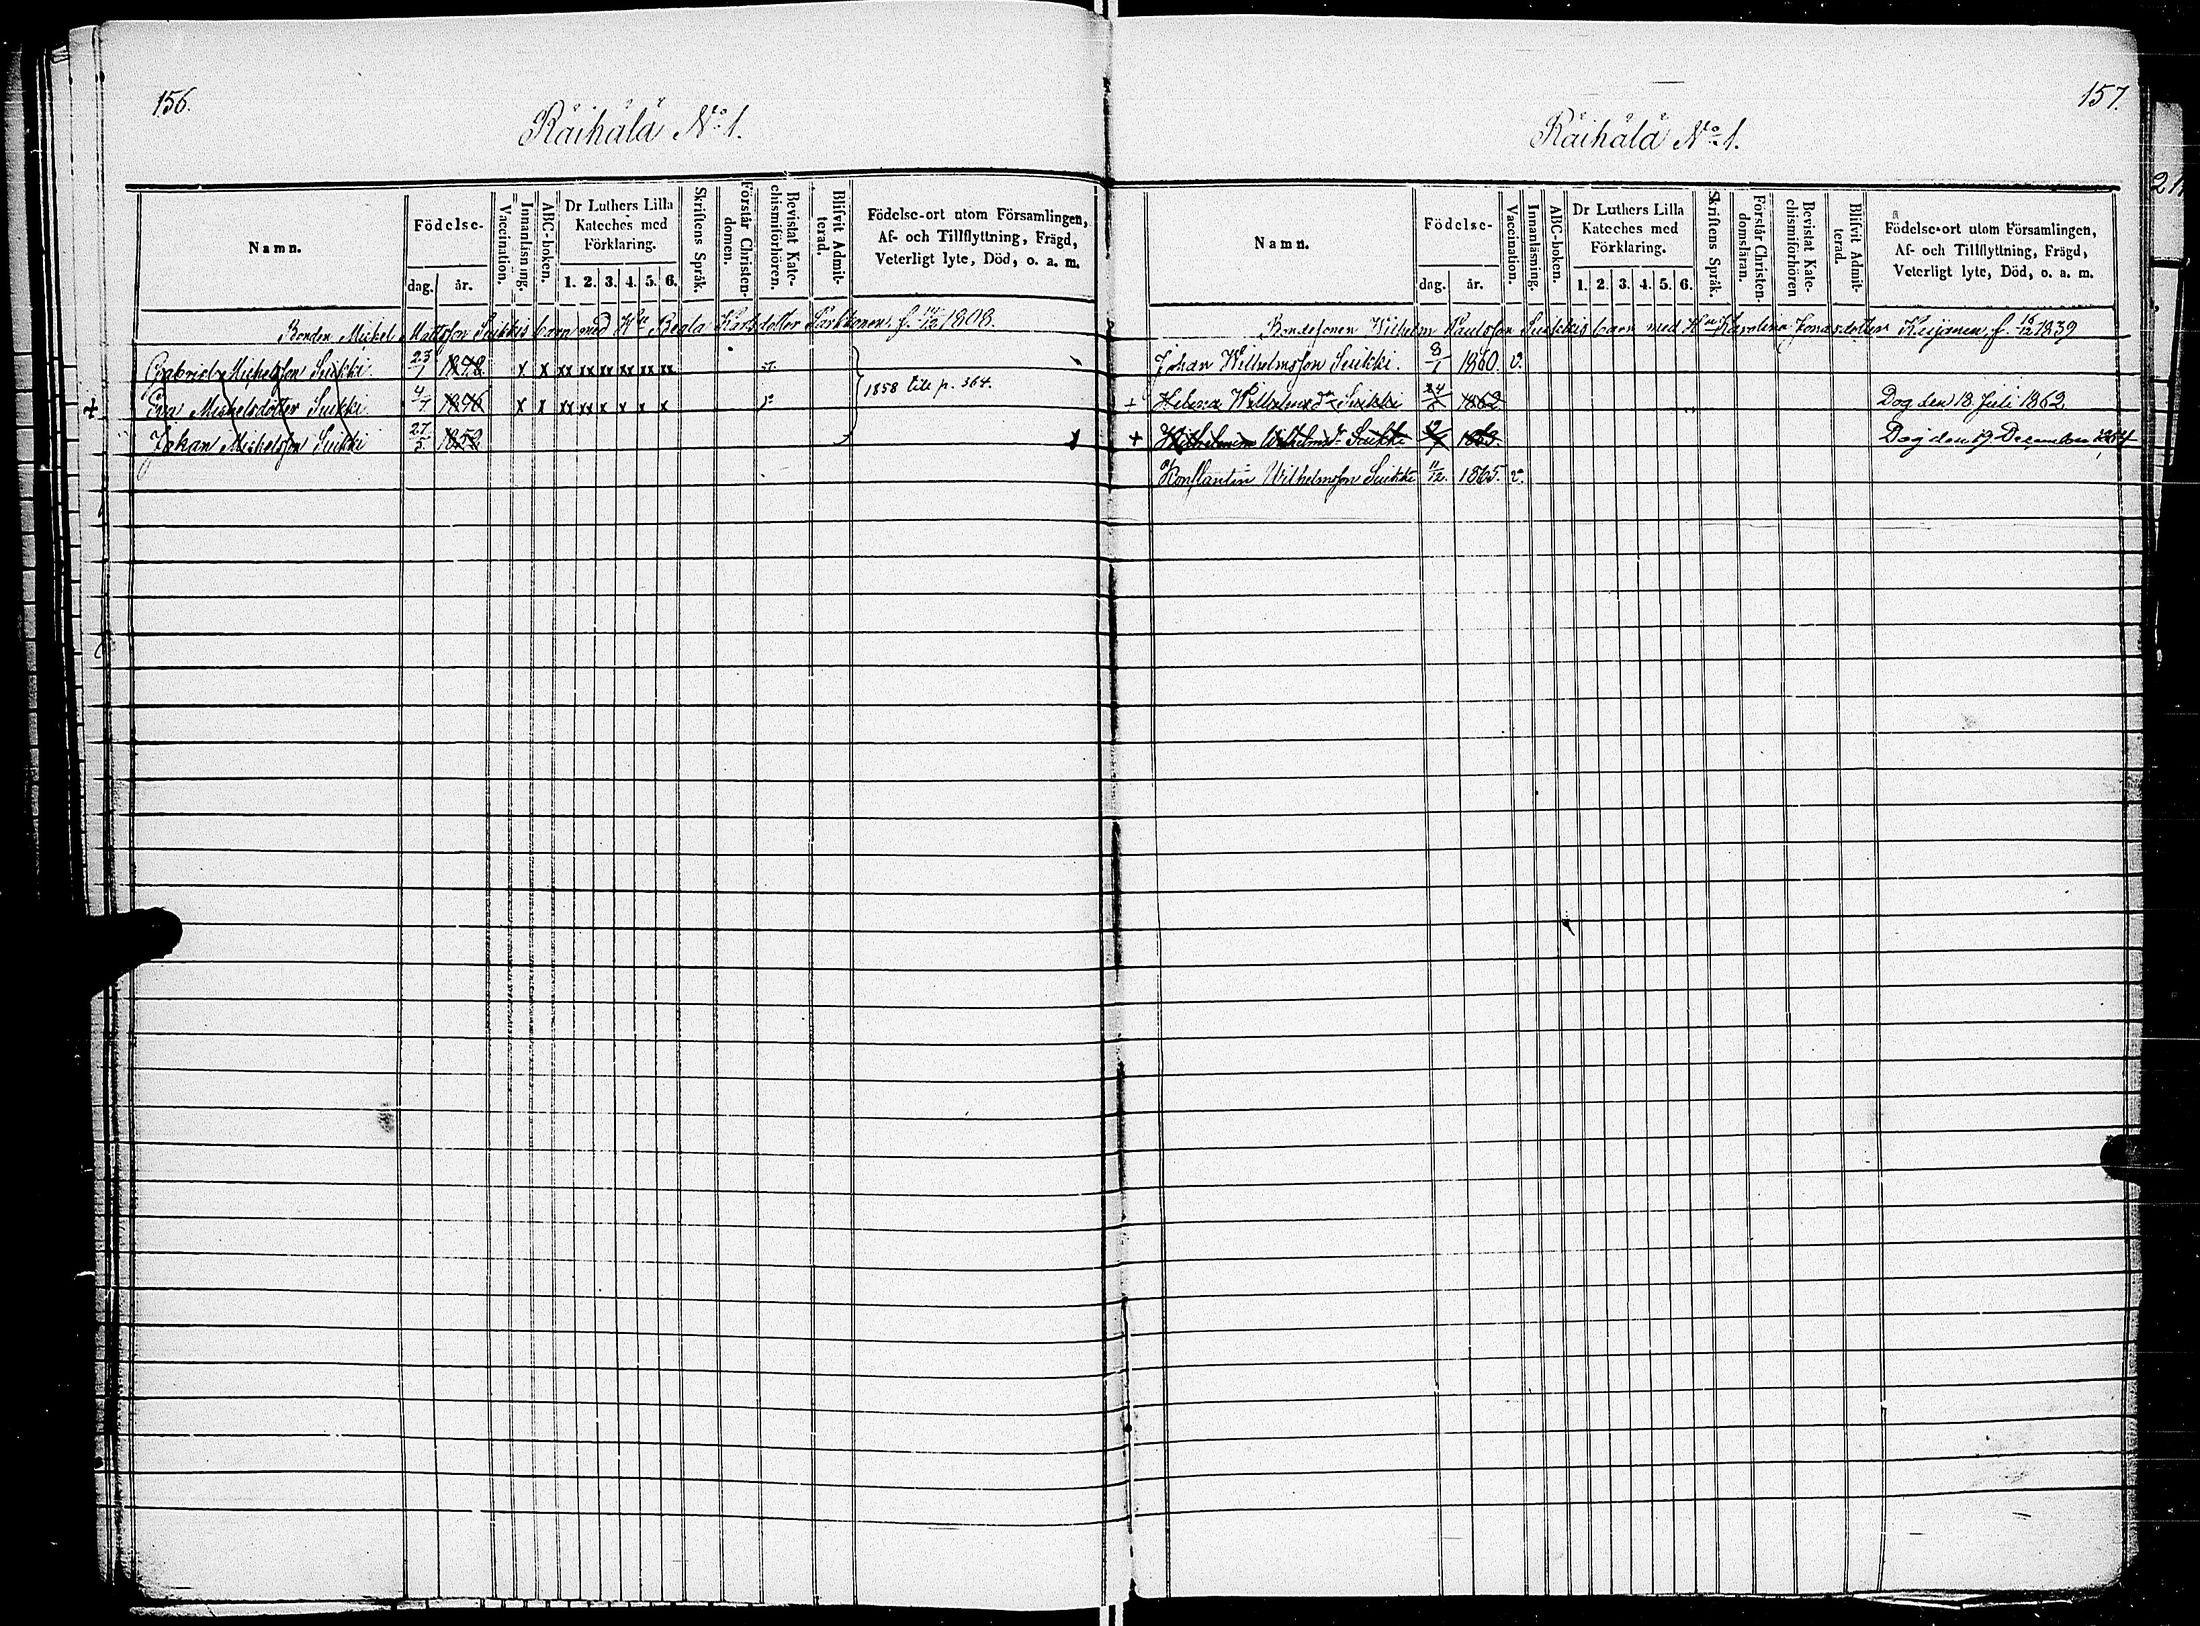 156.
Räihälä No 1.
Namn.
Födelse-
dag.
år.
Vaccination.
Innanläsning.
ABC-boken.
Dr Luthers Lilla
Kateches med
Förklaring.
1. 2. 3. 4. 5. 6.
Skriftens Språk.
Förstår Christen-
domen.
Bevistat Kate-
chismiförhören.
Blifvit Admit-
terad.
Födelse-ort utom Församlingen,
Af- och Tillflyttning, Frägd,
Veterligt lyte, Död, o. a. m.
Bonden Michel Mattsson Suikkis barn med Hu Beata Karlsdotter f. 1808.
Gabriel Michelsson Suikki 23/1 1848 x x xx xx xx xx xx xx
Eva Michelsdotter Suikki 4/7 x x xx xx x x x x
1858 till p. 364.
Johan Michelsson Suikki 27/5 1852
157.
Räihälä No 1.
Namn.
Födelse-
dag.
år.
Vaccination.
Innanläsning.
ABC-boken.
Dr Luthers Lilla
Kateches med
Förklaring.
1. 2. 3. 4. 5. 6.
Skriftens Språk.
Förstår Christen-
domsläran.
Bevistat Kate-
chismiförhören
Blifvit Admit-
terad.
Födelse-ort utom Församlingen,
Af- och Tillflyttning, Frägd,
Veterligt lyte, Död, o. a. m.
Bondesonen Wilhelm Paulsson Suikkis barn med Hu Karolina Jonasdotter Keijonen, f. 1839
Johan Wilhelmsson Suikki. 8/1 1860. v.
+ Helena Wilhelmsdr Suikki 1862 Dog den 18 Juli 1862
+ Wilhelmina Wilhelmsdr Suikki 1863. Dog den 19 December 1864
Konstantin Wilhelmsson Suikki 11/12. 1865. v.